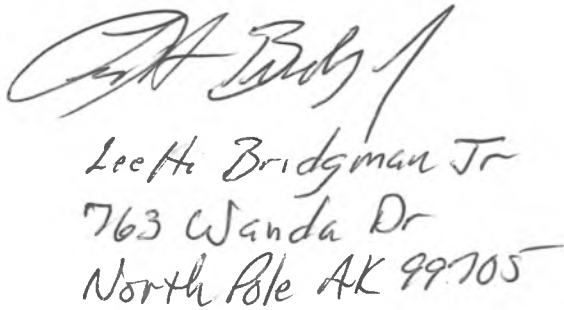 Lee H. Bridgman Jr
763 Wanda Dr
North Pole AK 99705